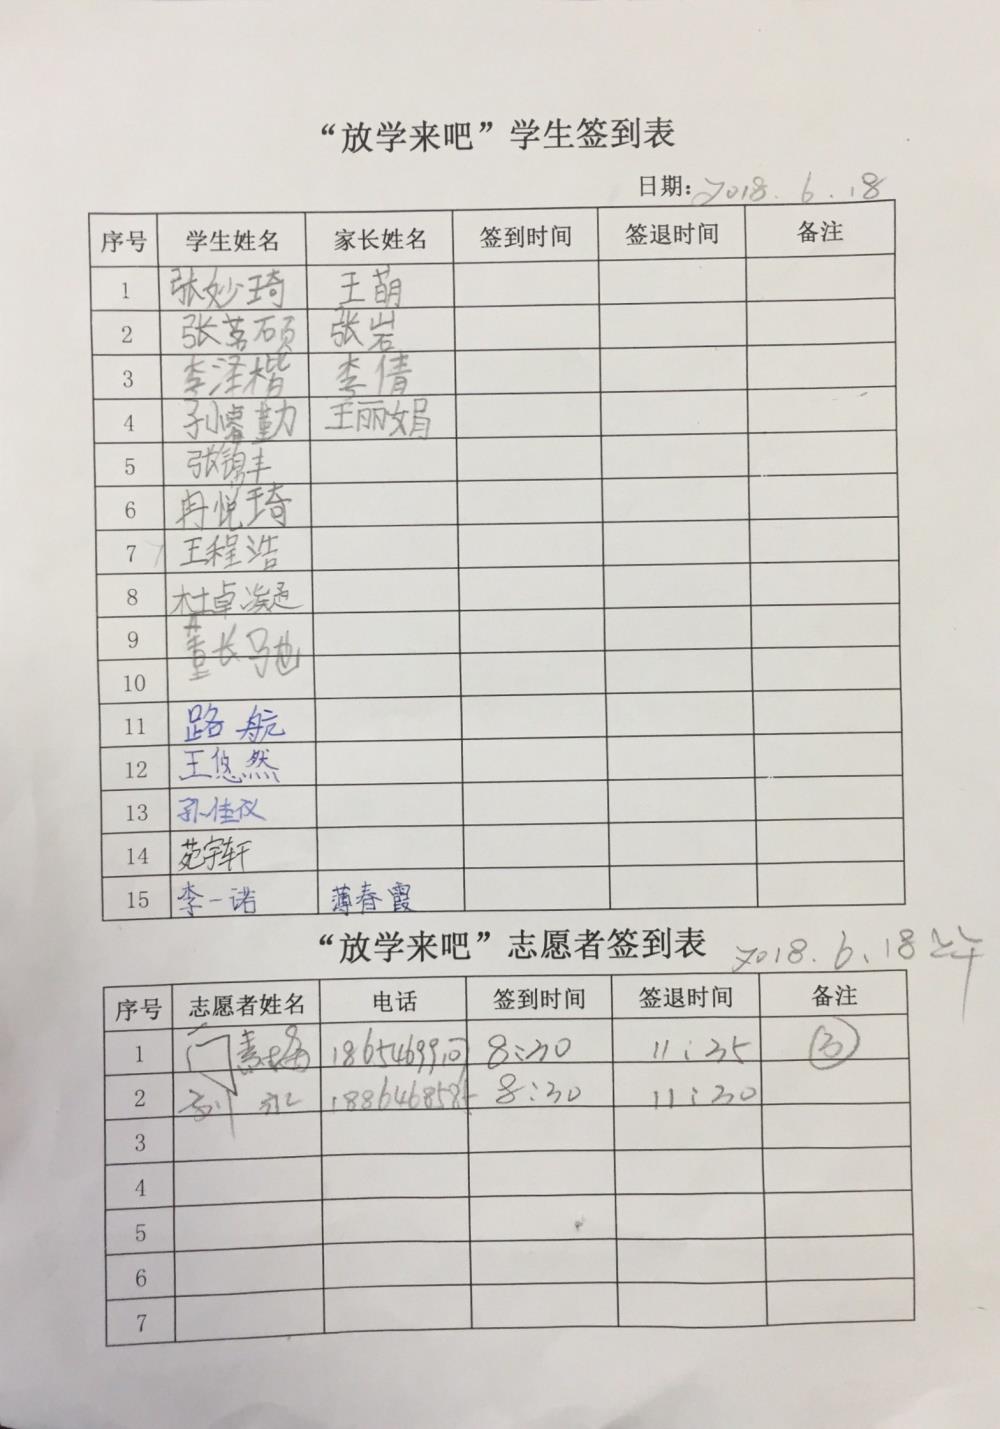 “放学来吧”学生签到表
日期: 2018.6.18
序号 学生姓名 家长姓名 签到时间 签退时间 备注
1 张妙琦 王萌
2 张茗硕 张岩
3 李泽楷 李倩
4 孙睿勤 王丽娟
5 张锦丰
6 冉悦琦
7 王程浩
8 杜卓凝
9 董长驰
10
11 路航
12 王悠然
13 孙佳仪
14 苑宇轩
15 李一诺 薄春霞
“放学来吧”志愿者签到表 2018.6.18 上午
序号 志愿者姓名 电话 签到时间 签退时间 备注
1 8:30 11:35 ③
2 8:30 11:30
3
4
5
6
7